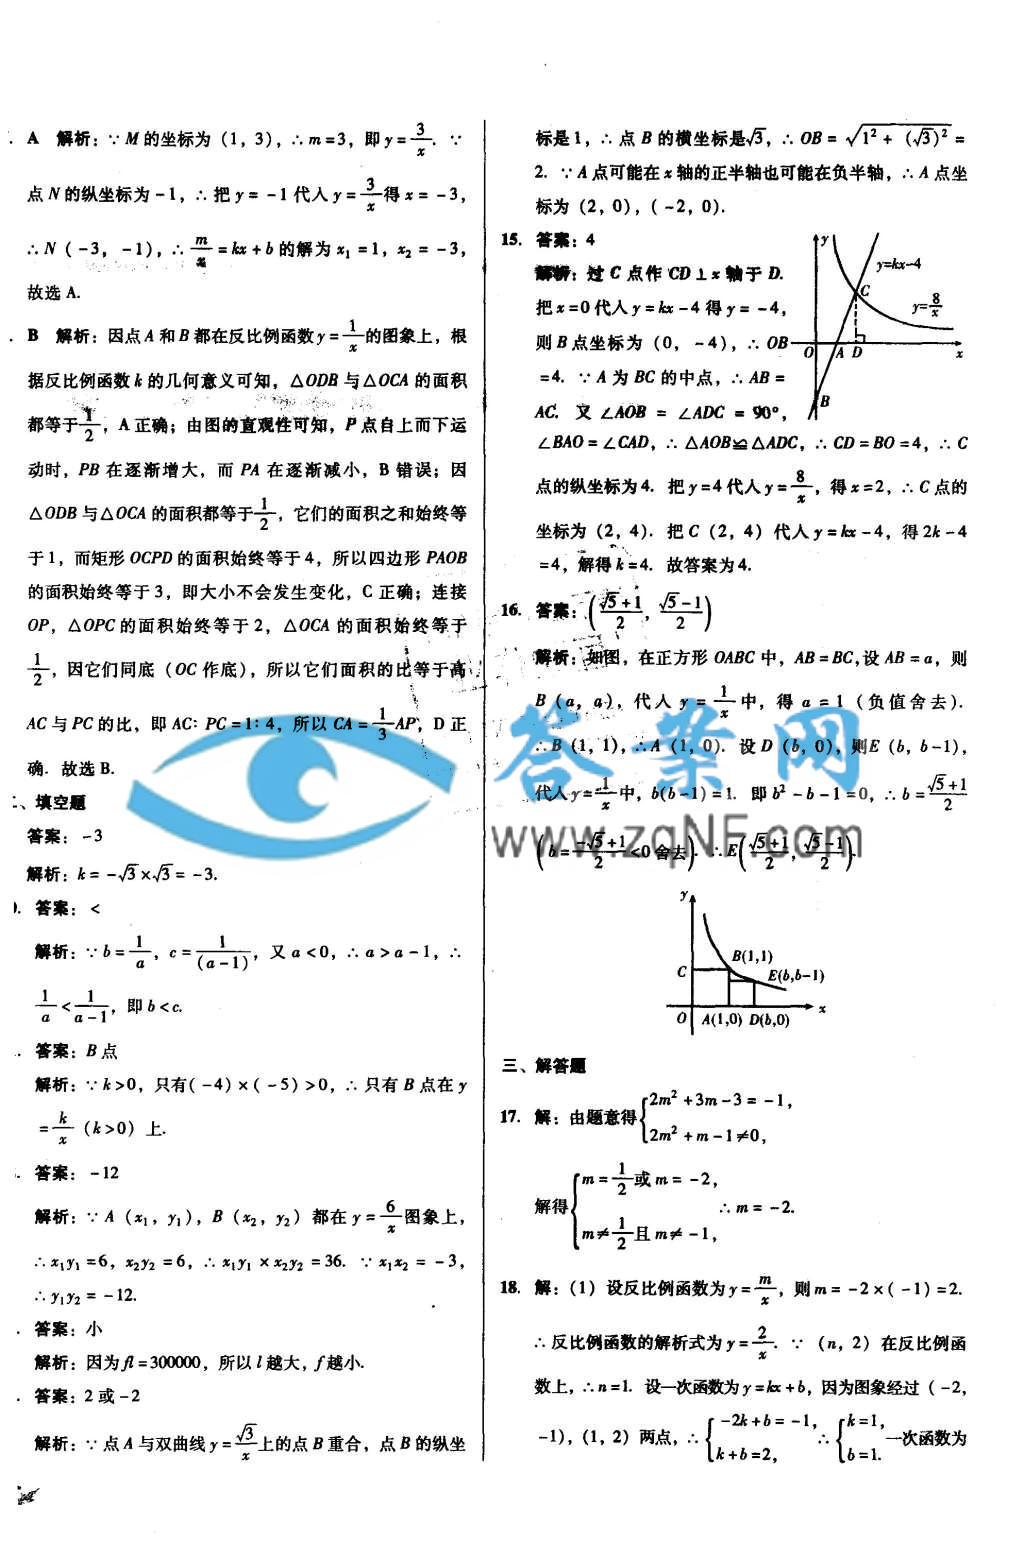 A 解析：∵M的坐标为（1，3），∴m=3，即y=3/x. ∵
点N的纵坐标为-1，∴把y=-1代入y=3/x得x=-3，
∴N（-3，-1），∴m/x=kx+b的解为x₁=1，x₂=-3，
故选A.
B 解析：因点A和B都在反比例函数y=1/x的图象上，根
据反比例函数k的几何意义可知，△ODB与△OCA的面积
都等于1/2，A正确；由图的直观性可知，P点自上而下运
动时，PB在逐渐增大，而PA在逐渐减小，B错误；因
△ODB与△OCA的面积都等于1/2，它们的面积之和始终等
于1，而矩形OCPD的面积始终等于4，所以四边形PAOB
的面积始终等于3，即大小不会发生变化，C正确；连接
OP，△OPC的面积始终等于2，△OCA的面积始终等于
1/2，因它们同底（OC作底），所以它们面积的比等于高
AC与PC的比，即AC：PC=1：4，所以CA=1/3AP，D正
确.故选B.
二、填空题
答案：-3
解析：k=-√3×√3=-3.
答案：<
解析：∵b=1/a，c=1/(a-1)，又a<0，∴a>a-1，∴
1/a<1/(a-1)，即b<c.
答案：B点
解析：∵k>0，只有(-4)×(-5)>0，∴只有B点在y
=k/x（k>0）上.
答案：-12
解析：∵A（x₁，y₁），B（x₂，y₂）都在y=6/x图象上，
∴x₁y₁=6，x₂y₂=6，∴x₁y₁×x₂y₂=36. ∵x₁x₂=-3，
∴y₁y₂=-12.
答案：小
解析：因为fl=300000，所以l越大，f越小.
答案：2或-2
解析：∵点A与双曲线y=√3/x上的点B重合，点B的纵坐
标是1，∴点B的横坐标是√3，∴OB=√(1²+(√3)²)=
2. ∵A点可能在x轴的正半轴也可能在负半轴，∴A点坐
标为（2，0），（-2，0）.
15. 答案：4
解析：过C点作CD⊥x轴于D.
把x=0代入y=kx-4得y=-4，
则B点坐标为（0，-4），∴OB
=4. ∵A为BC的中点，∴AB=
AC. 又∠AOB=∠ADC=90°，
y
y=kx-4
C
y=8/x
O A D x
B
∠BAO=∠CAD，∴△AOB≌△ADC，∴CD=BO=4，∴C
点的纵坐标为4. 把y=4代入y=8/x，得x=2，∴C点的
坐标为（2，4）. 把C（2，4）代入y=kx-4，得2k-4
=4，解得k=4. 故答案为4.
16. 答案：((√5+1)/2，(√5-1)/2)
解析：如图，在正方形OABC中，AB=BC，设AB=a，则
B（a，a），代入y=1/x中，得a=1（负值舍去）.
∴B（1，1），∴A（1，0）. 设D（b，0），则E（b，b-1），
代入y=1/x中，b(b-1)=1. 即b²-b-1=0，∴b=(√5+1)/2
(b=(-√5+1)/2<0舍去). ∴E((√5+1)/2，(√5-1)/2).
答案网
www.zqNF.com
y
B(1,1)
C
E(b,b-1)
O A(1,0) D(b,0) x
三、解答题
17. 解：由题意得{2m²+3m-3=-1，
2m²+m-1≠0，
解得{m=1/2或m=-2，
m≠1/2且m≠-1，
∴m=-2.
18. 解：（1）设反比例函数为y=m/x，则m=-2×(-1)=2.
∴反比例函数的解析式为y=2/x. ∵（n，2）在反比例函
数上，∴n=1. 设一次函数为y=kx+b，因为图象经过（-2，
-1），（1，2）两点，∴{-2k+b=-1，k+b=2， ∴{k=1，b=1. 一次函数为